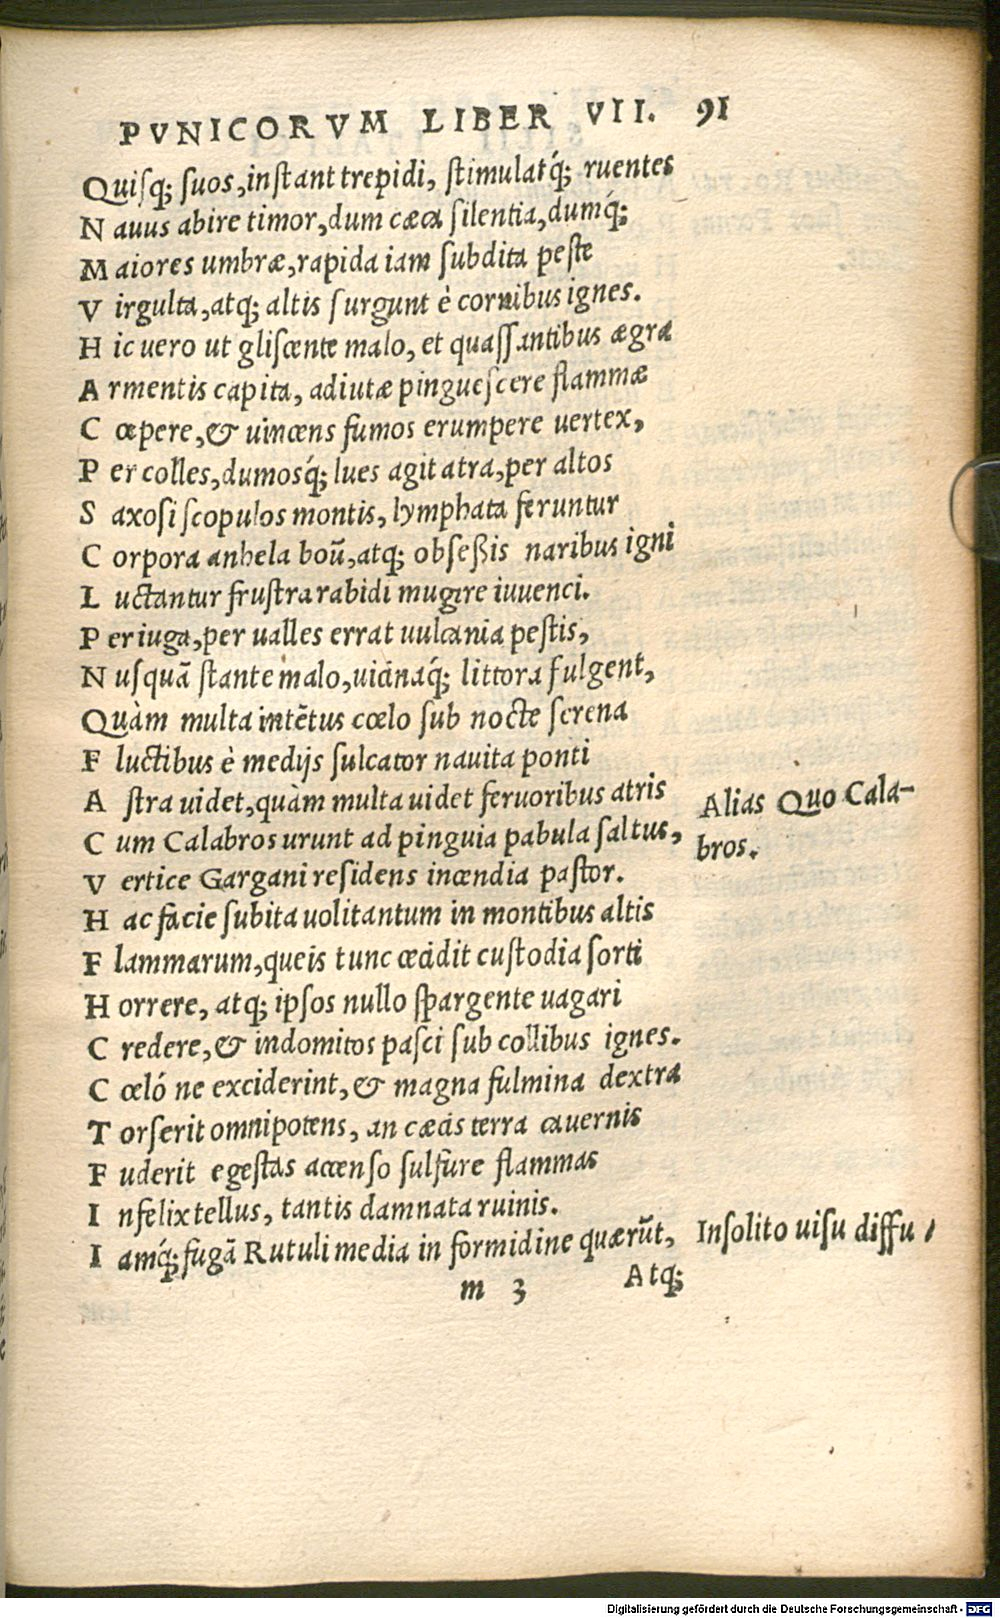 PVNICORVM LIBER VII. 91
Quiſq; ſuos, inſtant trepidi, ſtimulatq́; ruentes
N auus abire timor, dum cæca ſilentia, dumq́;
M aiores umbræ, rapida iam ſubdita peſte
V irgulta, atq; altis ſurgunt è cornibus ignes.
H ic uero ut gliſcente malo, et quaſſantibus ægra
A rmentis capita, adiutæ pingueſcere flammæ
C œpere, & uincens fumos erumpere uertex,
P er colles, dumosq́; lues agit atra, per altos
S axoſi ſcopulos montis, lymphata feruntur
C orpora anhela boũ, atq; obſeßis naribus igni
L uctantur fruſtra rabidi mugire iuuenci.
P er iuga, per ualles errat uulcania peſtis,
N uſquã ſtante malo, uicinaq́; littora fulgent,
Quàm multa intẽtus cœlo ſub nocte ſerena
F luctibus è medijs ſulcator nauita ponti
A ſtra uidet, quàm multa uidet feruoribus atris
C um Calabros urunt ad pinguia pabula ſaltus,
Alias Quo Cala-
bros.
V ertice Gargani reſidens incendia paſtor.
H ac facie ſubita uolitantum in montibus altis
F lammarum, queis tunc cecidit cuſtodia ſorti
H orrere, atq; ipſos nullo ſpargente uagari
C redere, & indomitos paſci ſub collibus ignes.
C œló ne exciderint, & magna fulmina dextra
T orſerit omnipotens, an cæcis terra cauernis
F uderit egeſtas accenſo ſulfure flammas
I nfelix tellus, tantis damnata ruinis.
I amq́; fugã Rutuli media in formidine quærũt,
Inſolito uiſu diffu /
m 3 Atq;
Digitalisierung gefördert durch die Deutsche Forschungsgemeinschaft - DFG